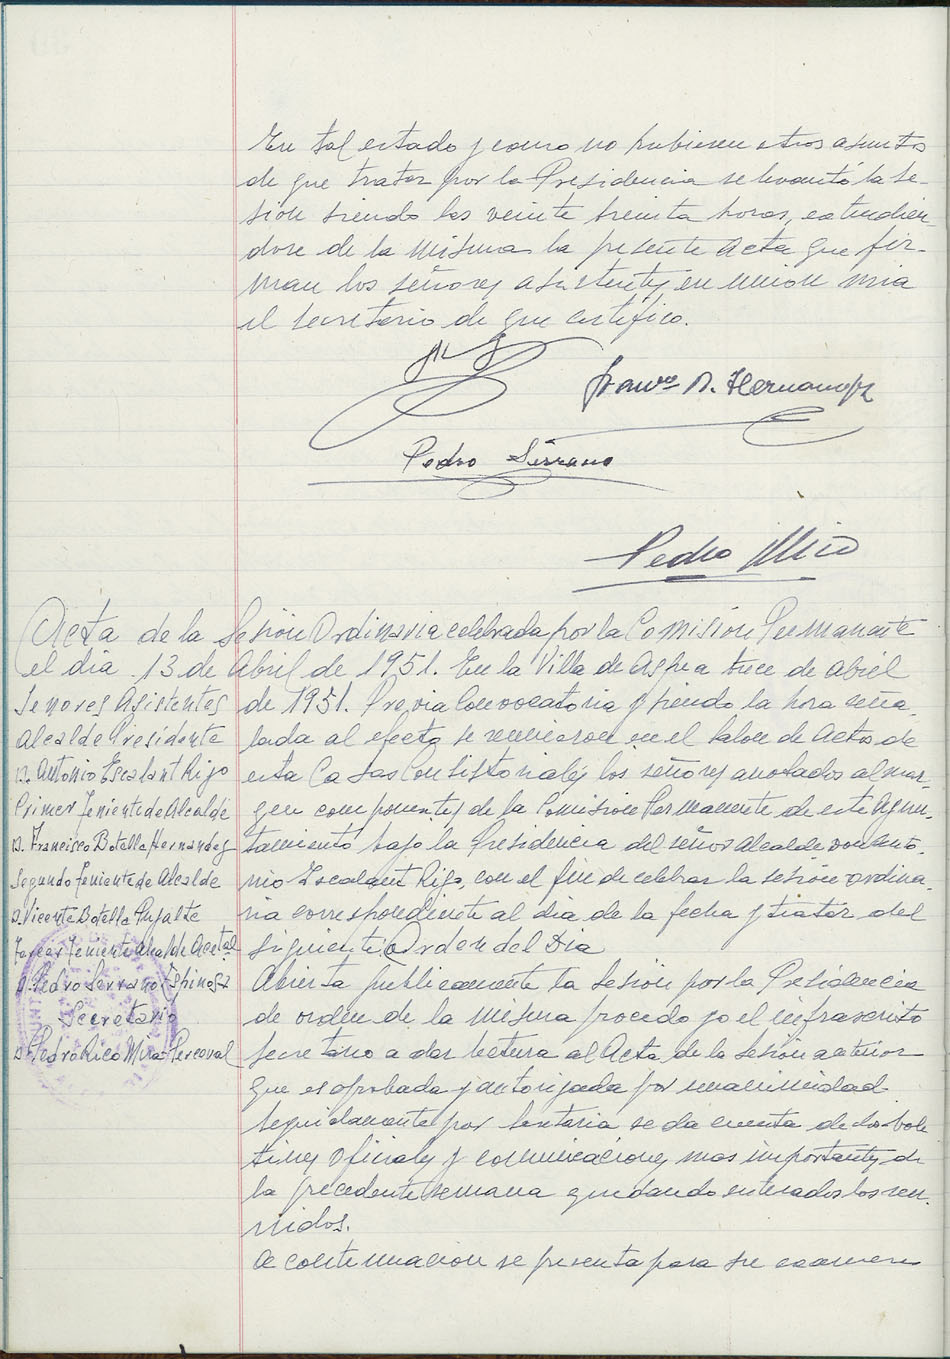 En tal estado y como no hubiesen otros asuntos
de que tratar por la Presidencia se levantó la se-
sion siendo las veinte treinta horas, extendien-
dose de la misma la presente Acta que fir-
man los señores asistentes en union mia
el secretario de que certifico.
Franco B. Hernandez
Pedro Serrano
Pedro Mico
Acta de la Sesión Ordinaria celebrada por la Comisión Permanente
el dia 13 de Abril de 1951. En la Villa de Aspe a trece de abril
Señores Asistentes
Alcalde Presidente
D. Antonio Escalant Rigo
Primer Teniente de Alcalde
D. Francisco Botella Hernandez
Segundo Teniente de Alcalde
D. Vicente Botella Pujalte
Tercer Teniente Alcalde Acctal
D. Pedro Serrano Espinosa
Secretario
D. Pedro Rico Mira-Perceval
de 1951. Previa Convocatoria y siendo la hora seña-
lada al efecto se reunieron en el Salon de Actos de
esta Casas Consistoriales los señores anotados al mar-
gen componentes de la Comision Permanente de este Ayun-
tamiento bajo la Presidencia del señor Alcalde don Anto-
nio Escalant Rigo, con el fin de celebrar la sesión ordina-
ria correspondiente al dia de la fecha y tratar del
siguiente Orden del Dia
Abierta publicamente la Sesión por la Presidencia
de orden de la misma procedo yo el infrascrito
Secretario a dar lectura al Acta de la sesión anterior
que es aprobada y autorizada por unanimidad.
Seguidamente por Secretaria se da cuenta de los bole-
tines Oficiales y comunicaciones mas importantes de
la precedente semana quedando enterados los reu-
nidos.
A continuacion se presenta para su examen